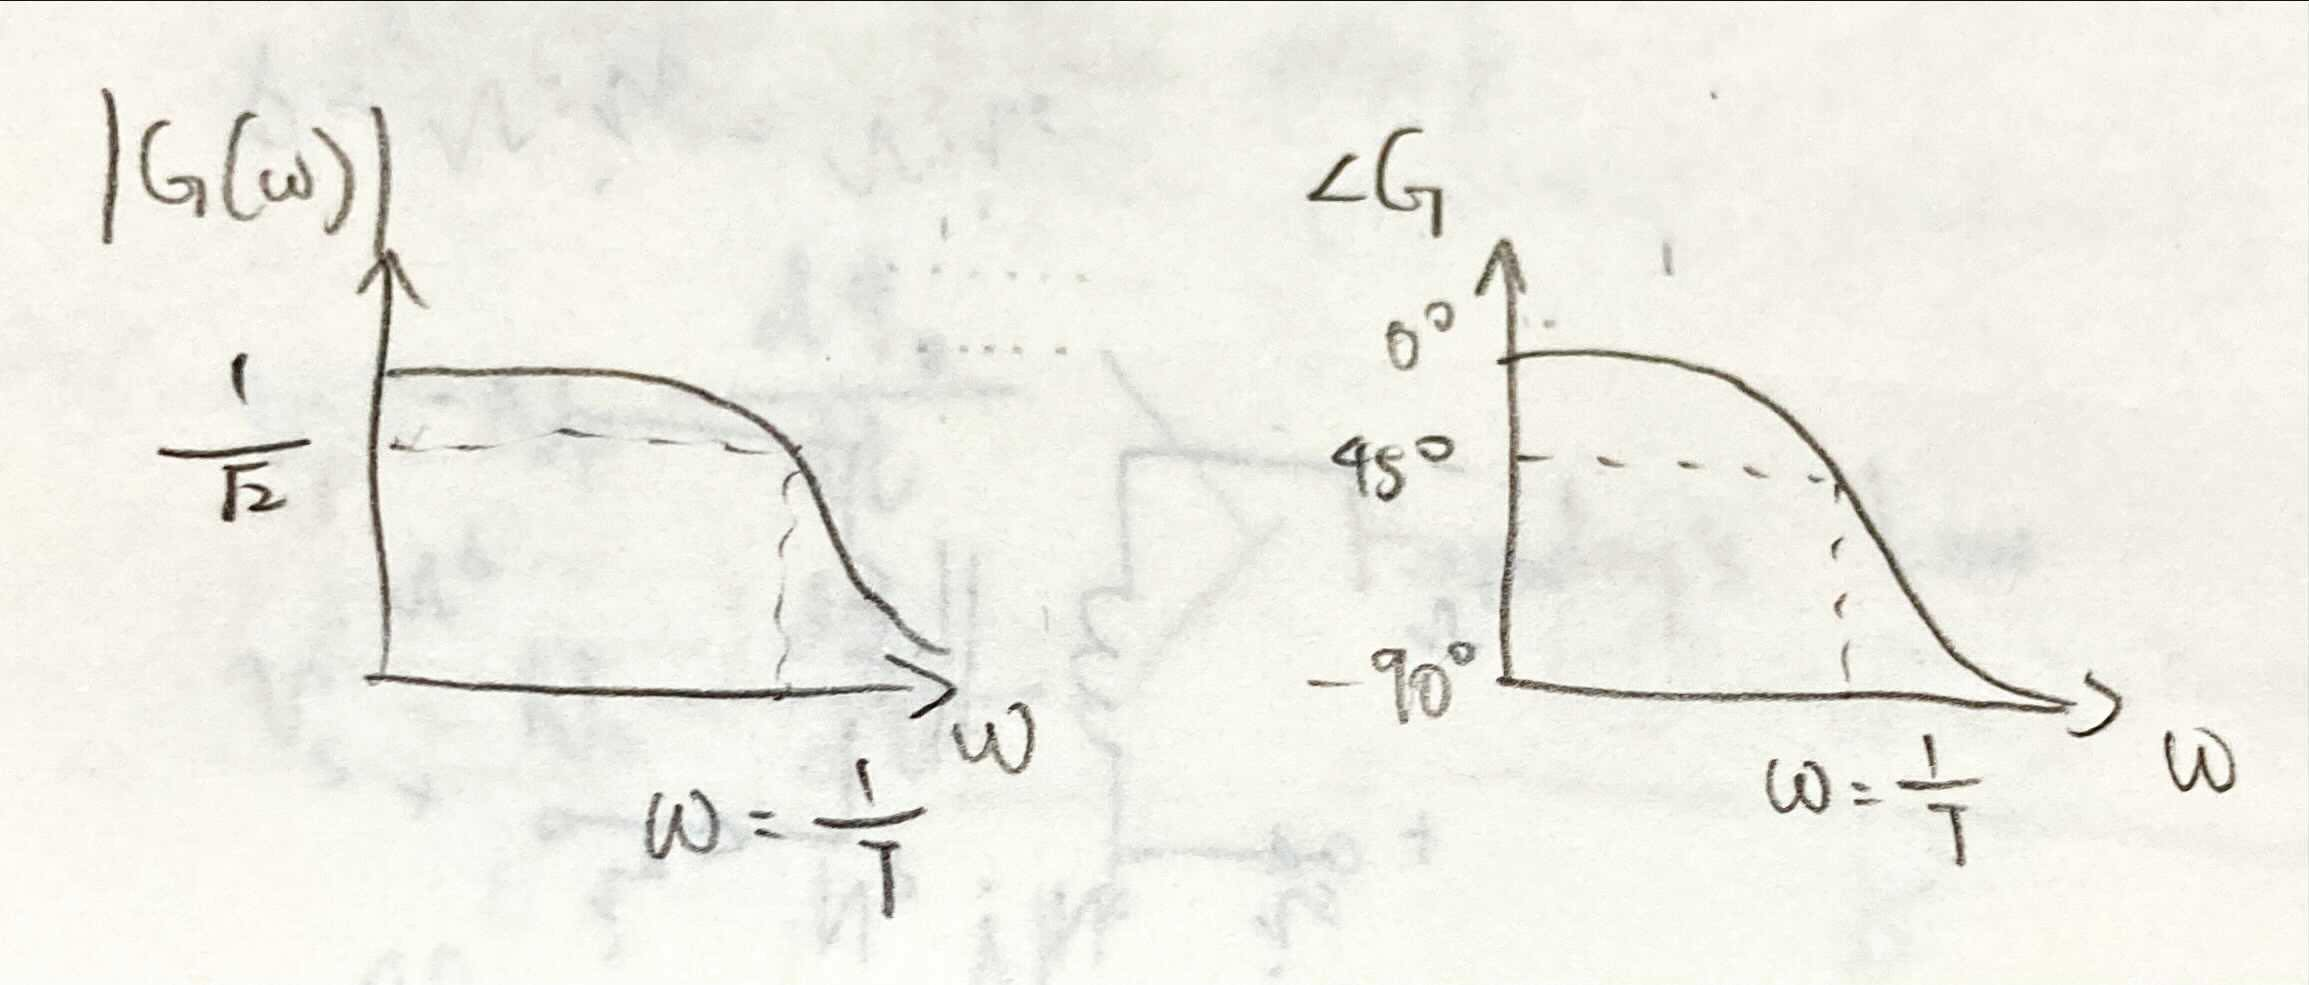 |G(ω)|
1/√2
ω
ω = 1/T
∠G
0°
45°
-90°
ω
ω = 1/T